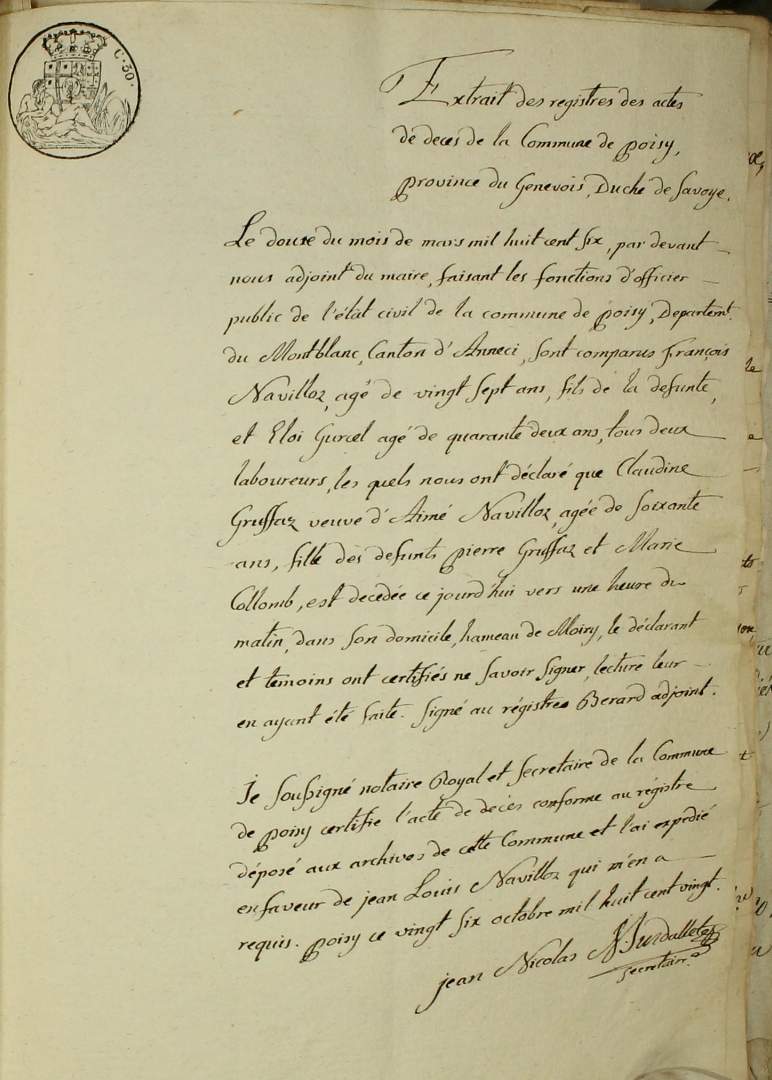 C. 30.
Extrait des registres des actes
de deces de la Commune de poisy,
province du Genevois, Duché de Savoye.
Le douze du mois de mars mil huit cent six, par devant
nous adjoint du maire, faisant les fonctions d'officier
public de l'état civil de la commune de poisy, Departemt.
du Montblanc, Canton d'Anneci, sont comparus François
Navilloz, agé de vingt sept ans, fils de la defunte,
et Eloi Gurcel agé de quarante deux ans, tous deux
laboureurs, les quels nous ont déclaré que Claudine
Gruffaz veuve d'Aimé Navilloz, agée de soixante
ans, fille des defunts pierre Gruffaz et Marie
Collomb, est decedée ce jourd'hui vers une heure du
matin, dans son domicile, hameau de Moiry, le déclarant
et temoins ont certifiés ne savoir signer, lecture leur
en ayant été faite. signé au régistre Berard adjoint.
Je soussigné notaire Royal et secretaire de la Commune
de poisy certifie l'acte de decès conforme au régistre
déposé aux archives de cette Commune et l'ai expédié
en faveur de jean Louis Navilloz qui m'en a
requis. poisy ce vingt six octobre mil huit cent vingt.
jean Nicolas
secretaire.